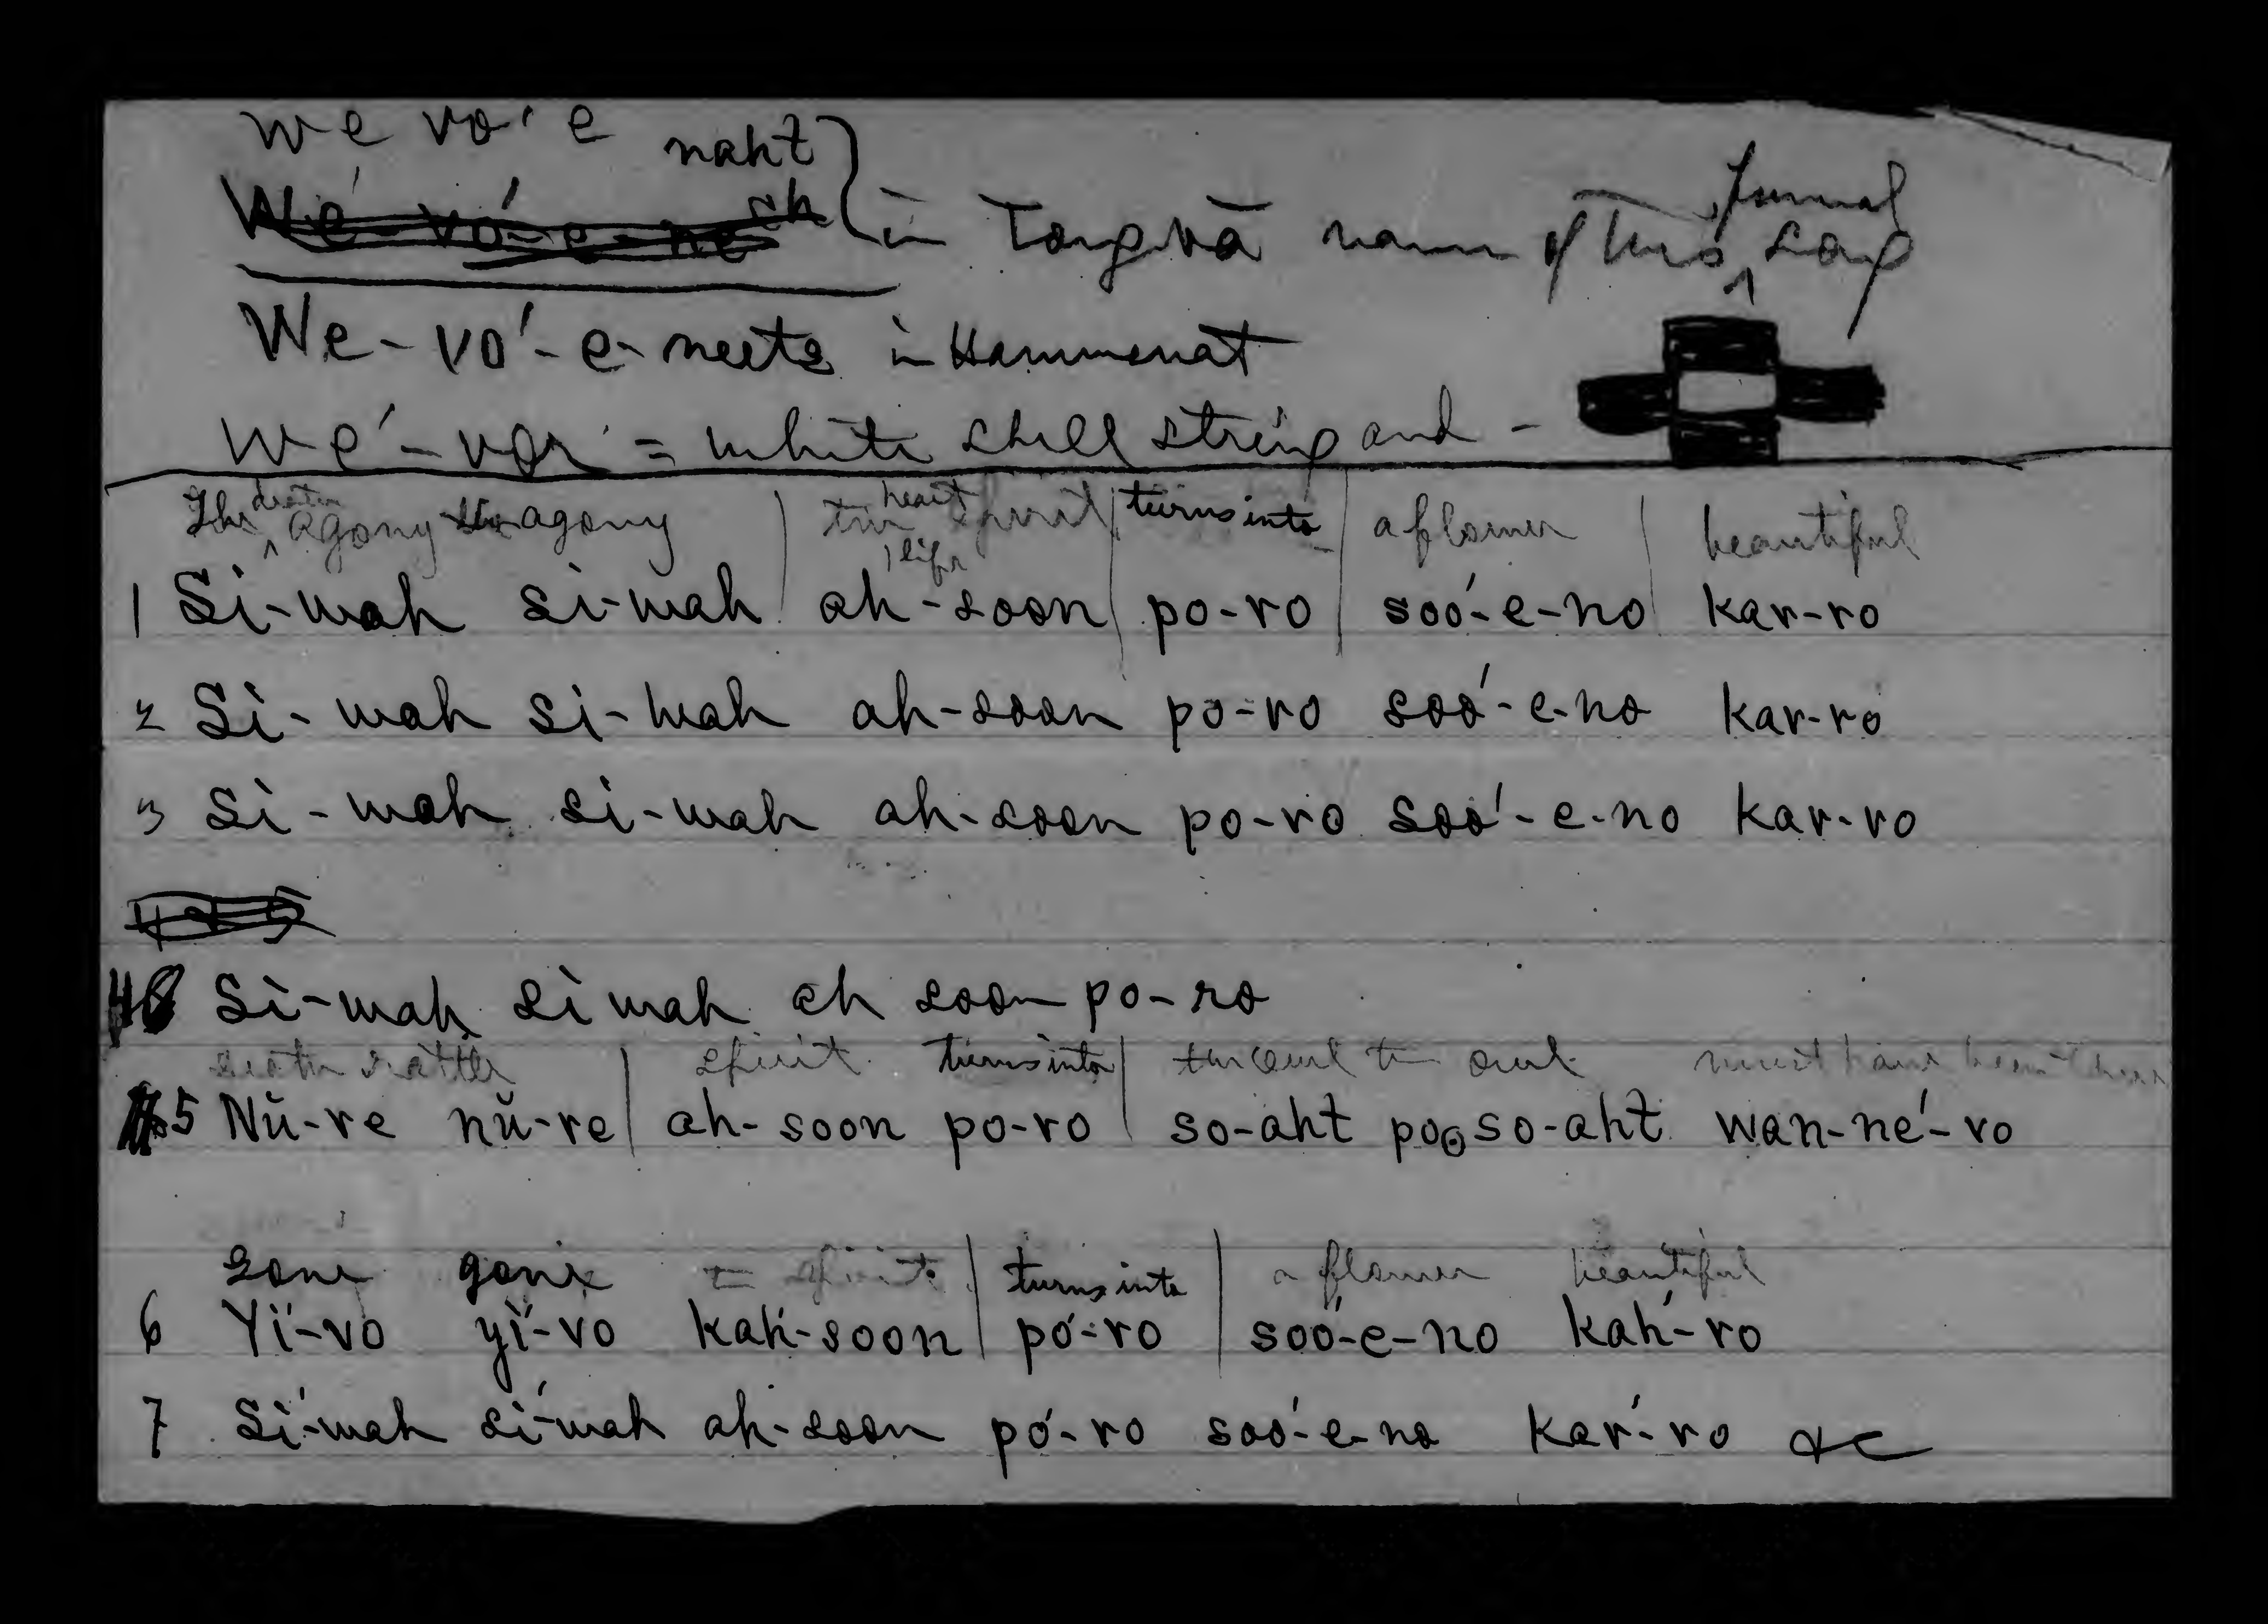 we vo' e naht
We-vo'-e-ne ch } in Tongvā name of this funeral song
We-vo'-e-neets in Hammenat
we'-vor = white shell string and -
The death agony the agony | the heart spirit life | turns into | a flower | beautiful
1 Si-wah si-wah | ah-soon | po-ro | soo'-e-no | kar-ro
2 Si-wah si-wah ah-soon po-ro soo'-e-no kar-ro
3 Si-wah si-wah ah-soon po-ro soo'-e-no kar-ro
4 Si-wah si wah ah soon po-ro
death rattle | spirit turns into | the owl the owl must have been
5 Nŭ-re nŭ-re | ah-soon po-ro | so-aht poo so-aht wan-né-ro
gone gone spirit | turns into | a flower beautiful
6 Yí-vo yí-vo kah-soon | pó-ro | soó-e-no káh-ro
7 Sí-wah sí-wah ah-soon pó-ro soó-e-no kár-ro &c